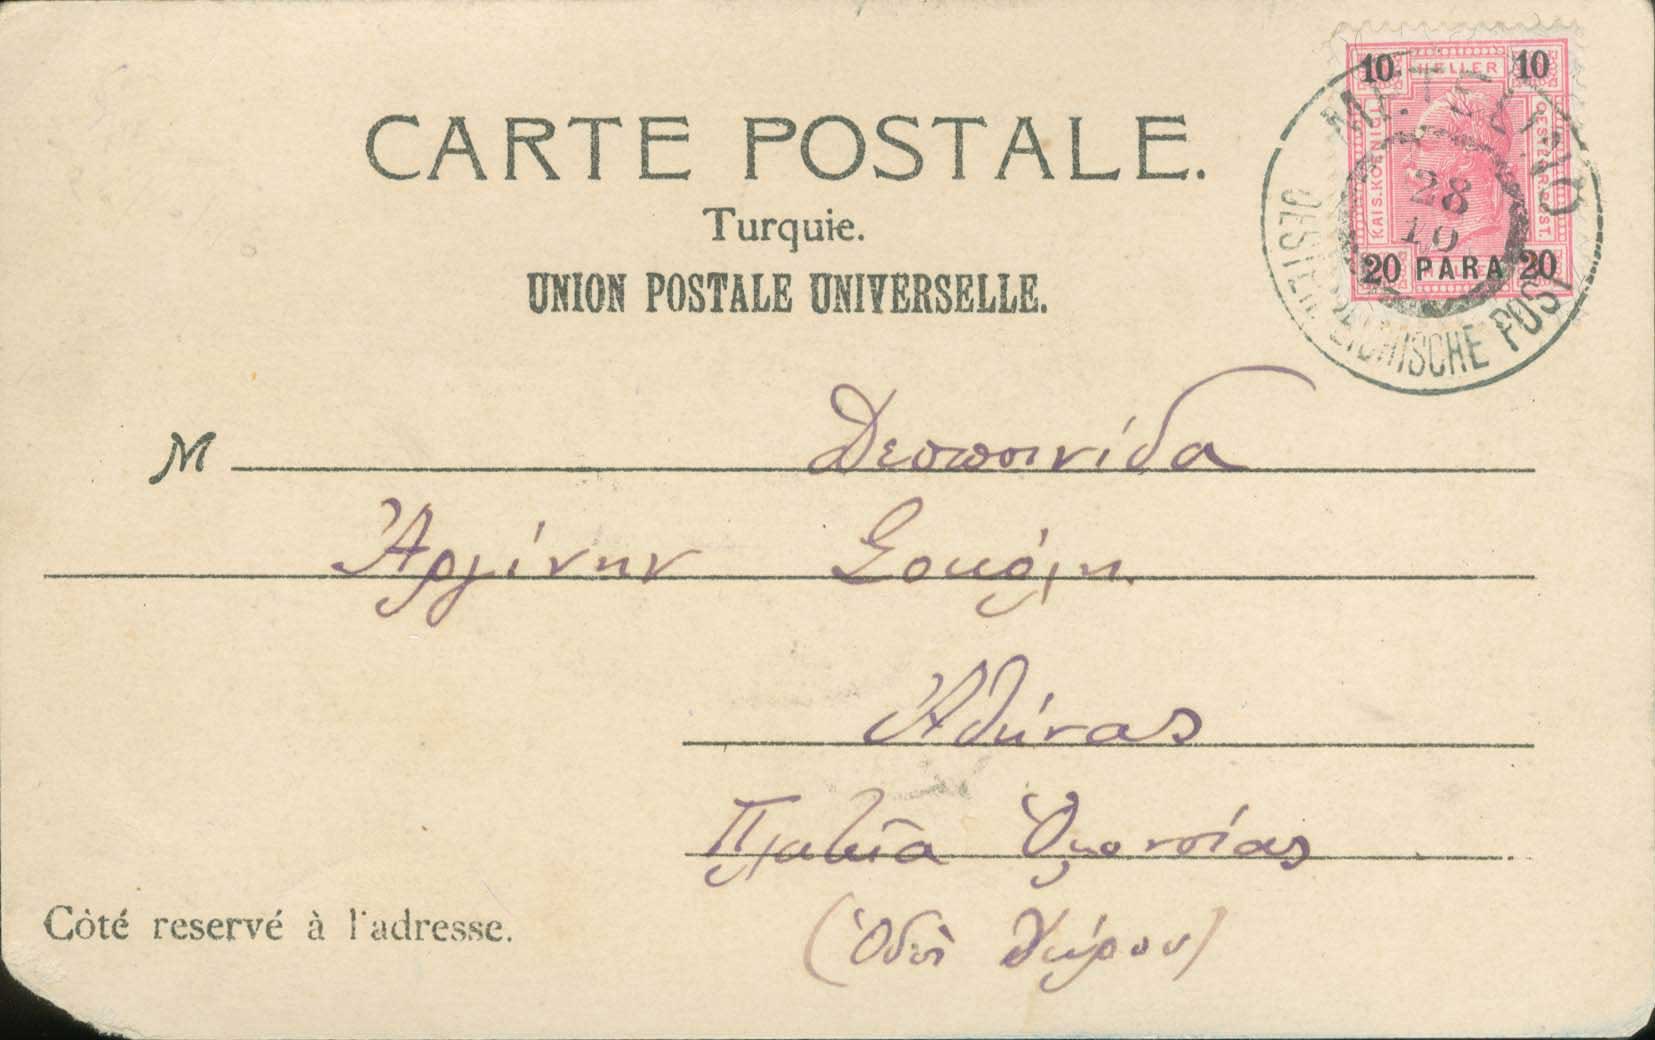 CARTE POSTALE.
Turquie.
UNION POSTALE UNIVERSELLE.
10 HELLER 10
KAIS. KOENIGL.
OESTERR. POST.
20 PARA 20
METELINO
28
10
OESTERREICHISCHE POST
M Δεσποινίδα
Ἀργίνην Σοκόλη
Ἀθήνας
Πλατεῖα Ὁμονοίας
(Ὁδὸς
Côté reservé à l'adresse.